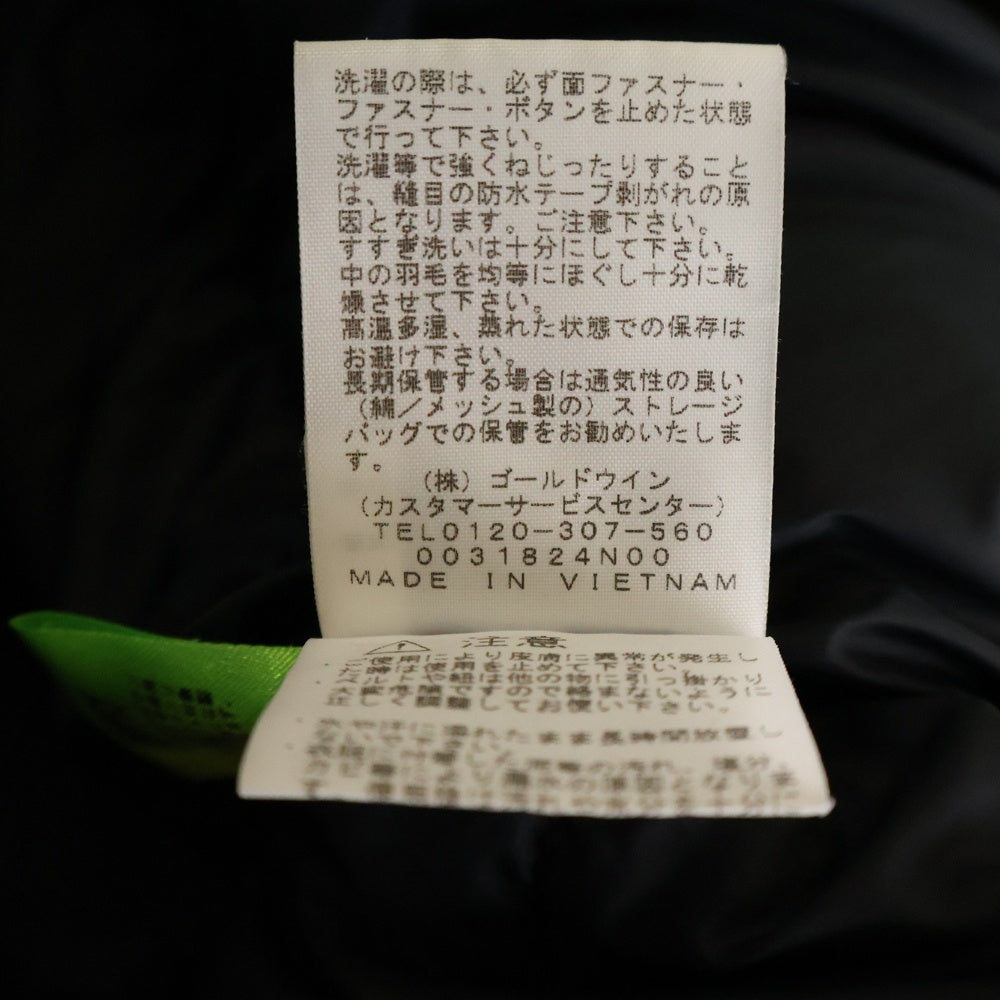 洗濯の際は、必ず面ファスナー・
ファスナー・ボタンを止めた状態
で行って下さい。
洗濯等で強くねじったりすること
は、縫目の防水テープ剥がれの原
因となります。ご注意下さい。
すすぎ洗いは十分にして下さい。
中の羽毛を均等にほぐし十分に乾
燥させて下さい。
高温多湿、蒸れた状態での保存は
お避け下さい。
長期保管する場合は通気性の良い
(綿/メッシュ製の)ストレージ
バッグでの保管をお勧めいたしま
す。
(株)ゴールドウイン
(カスタマーサービスセンター)
TEL0120-307-560
0031824N00
MADE IN VIETNAM
注意
使用により皮膚に異常が発生し
た際は使用を止めて下さい。